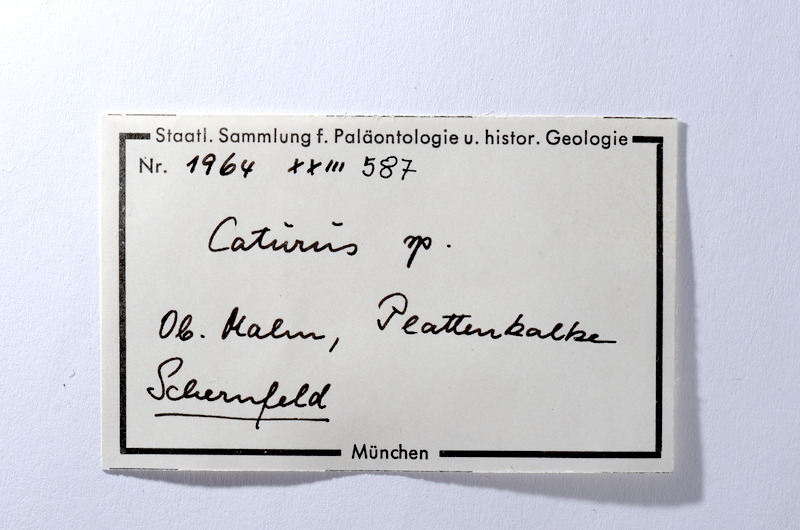 Staatl. Sammlung f. Paläontologie u. histor. Geologie
Nr. 1964 XXIII 587
Caturus sp.
Ob. Malm, Plattenkalke
Schernfeld
München